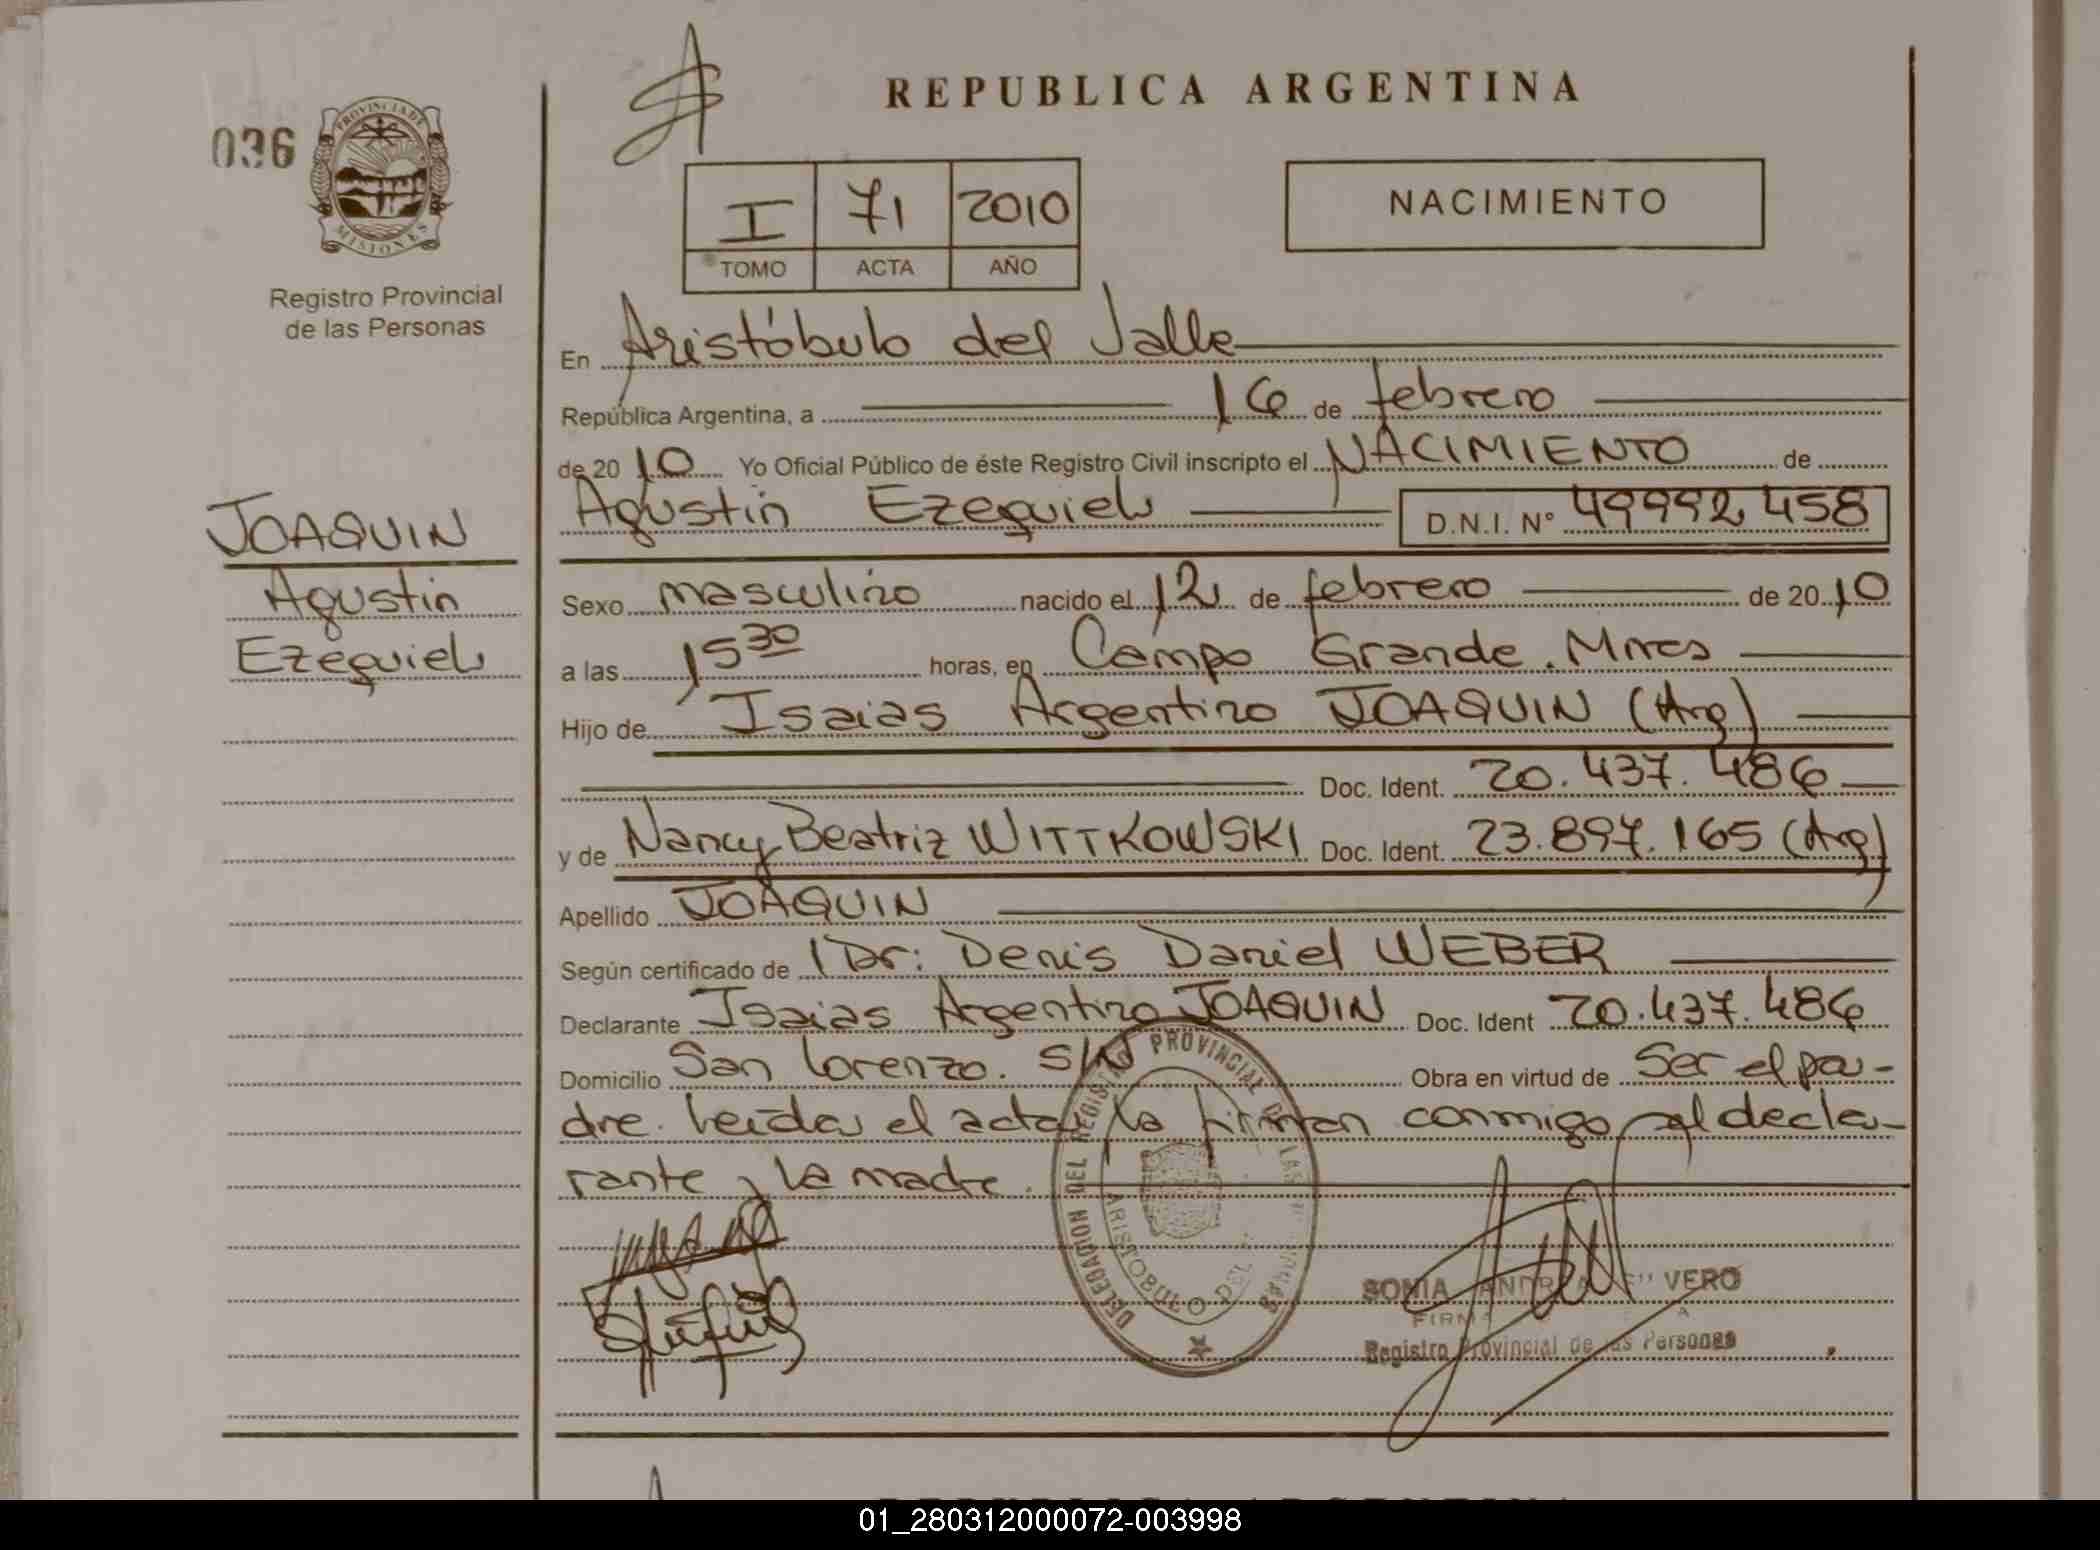 REPUBLICA ARGENTINA
036
PROVINCIA DE
MISIONES
Registro Provincial
de las Personas
I 71 2010
TOMO ACTA AÑO
NACIMIENTO
En Aristóbulo del Valle
República Argentina, a 16 de febrero
de 20 10 Yo Oficial Público de éste Registro Civil inscripto el NACIMIENTO de
Agustin Ezequiel D.N.I. Nº 49992458
JOAQUIN
Agustin
Ezequiel
Sexo masculino nacido el 12 de febrero de 20 10
a las 15 30 horas, en Campo Grande. Mnes
Hijo de Isaias Argentino JOAQUIN (Arg)
Doc. Ident. 20.437.486
y de Nancy Beatriz WITTKOWSKI Doc. Ident. 23.897.165 (Arg)
Apellido JOAQUIN
Según certificado de Dr: Denis Daniel WEBER
Declarante Isaias Argentino JOAQUIN Doc. Ident 20.437.486
Domicilio San Lorenzo. S/N Obra en virtud de Ser el pa-
dre. Leida el acta, la firman conmigo el decla-
rante y la madre.
DELEGACION DEL REGISTRO PROVINCIAL DE LAS PERSONAS
ARISTOBULO DEL
SONIA ANDREA VERO
FIRMA
Registro Provincial de las Personas
01_280312000072-003998